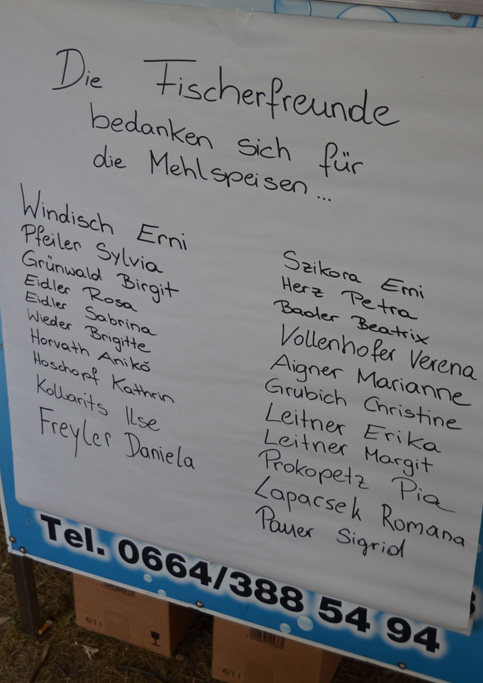 Die Fischerfreunde
bedanken sich für
die Mehlspeisen...
Windisch Erni
Pfeiler Sylvia
Grünwald Birgit
Eidler Rosa
Eidler Sabrina
Wieder Brigitte
Horvath Anikó
Hoschopf Kathrin
Kollarits Ilse
Freyler Daniela
Szikora Erni
Herz Petra
Bader Beatrix
Vollenhofer Verena
Aigner Marianne
Grubich Christine
Leitner Erika
Leitner Margit
Prokopetz Pia
Lapacsek Romana
Pauer Sigrid
Tel. 0664/388 54 94